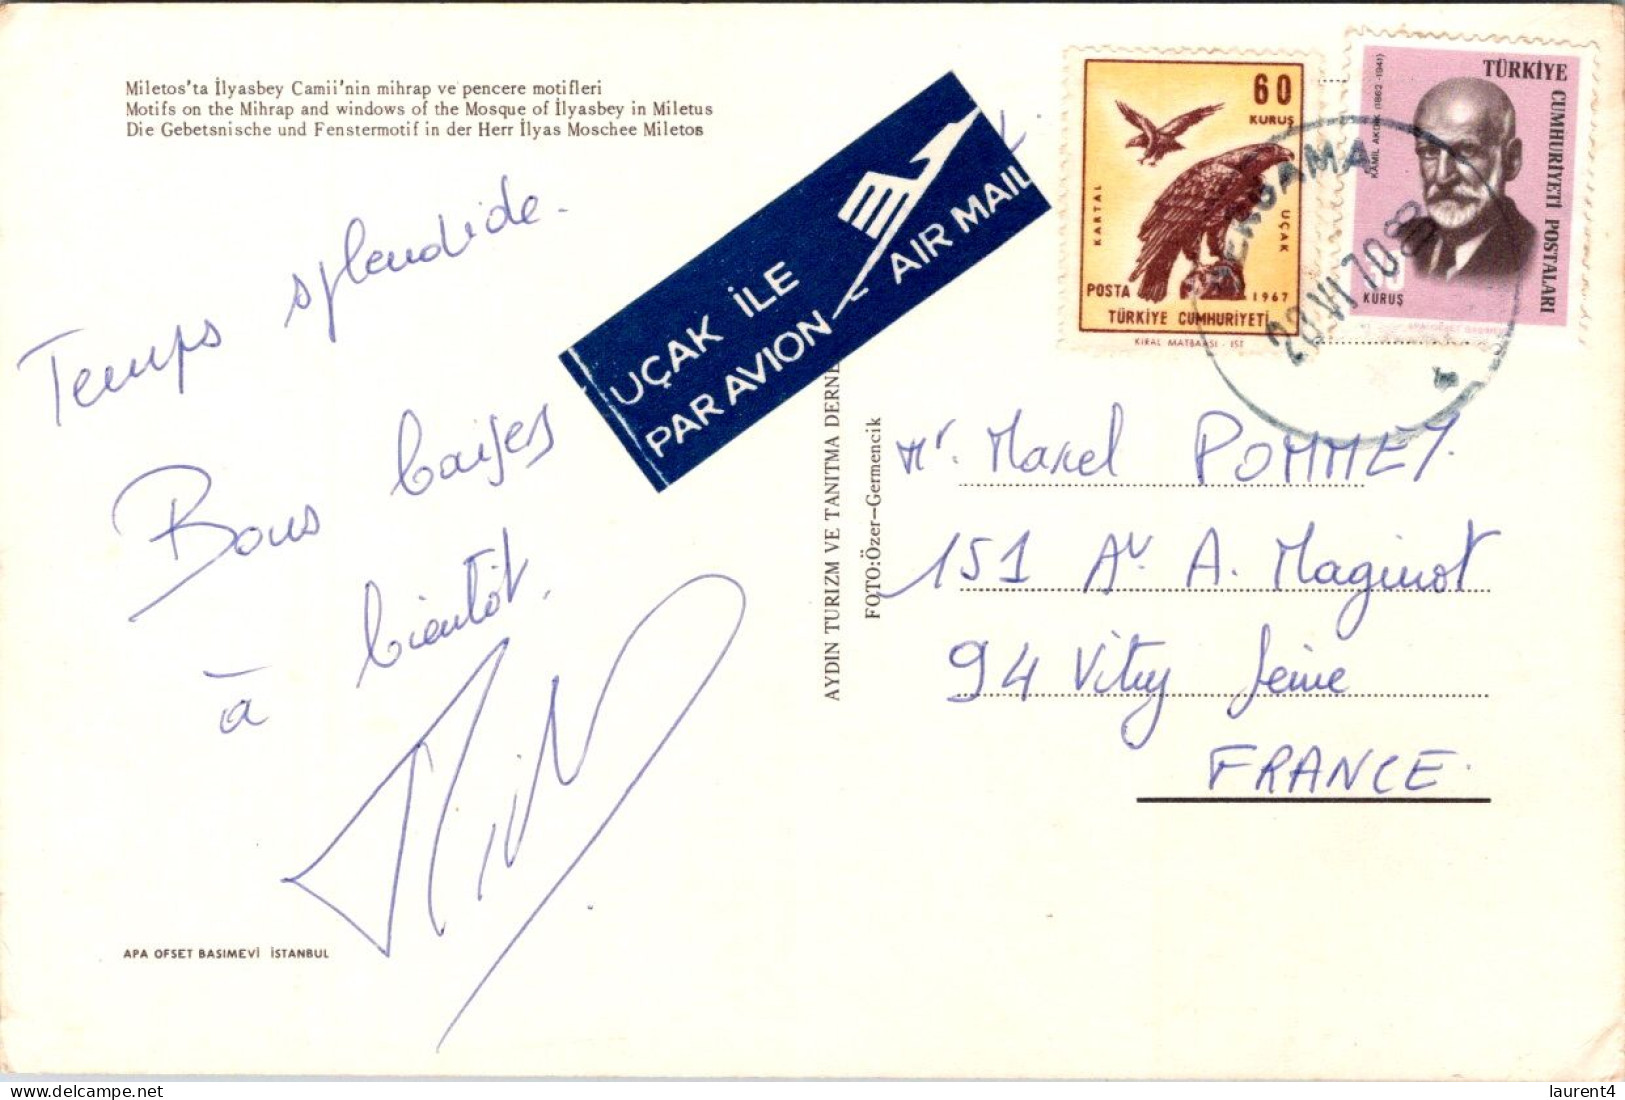 Miletos'ta İlyasbey Camii'nin mihrap ve pencere motifleri
Motifs on the Mihrap and windows of the Mosque of İlyasbey in Miletus
Die Gebetsnische und Fenstermotif in der Herr İlyas Moschee Miletos
Temps splendide.
Bons baises
à bientôt.
APA OFSET BASIMEVİ İSTANBUL
UÇAK İLE
PAR AVION
AIR MAIL
AYDIN TURIZM VE TANITMA DERNE
FOTO:Özer—Germencik
60
KURUŞ
KARTAL
UÇAK
POSTA
1967
TÜRKİYE CUMHURİYETİ
KIRAL MATBAASI - IST
TÜRKİYE
CUMHURİYETİ POSTALARI
KAMİL AKDİK (1862-1941)
KURUŞ
BERGAMA
Mr. Marcel POMMEY.
151 Av A. Maginot
94 Vitry Seine
FRANCE.
laurent4